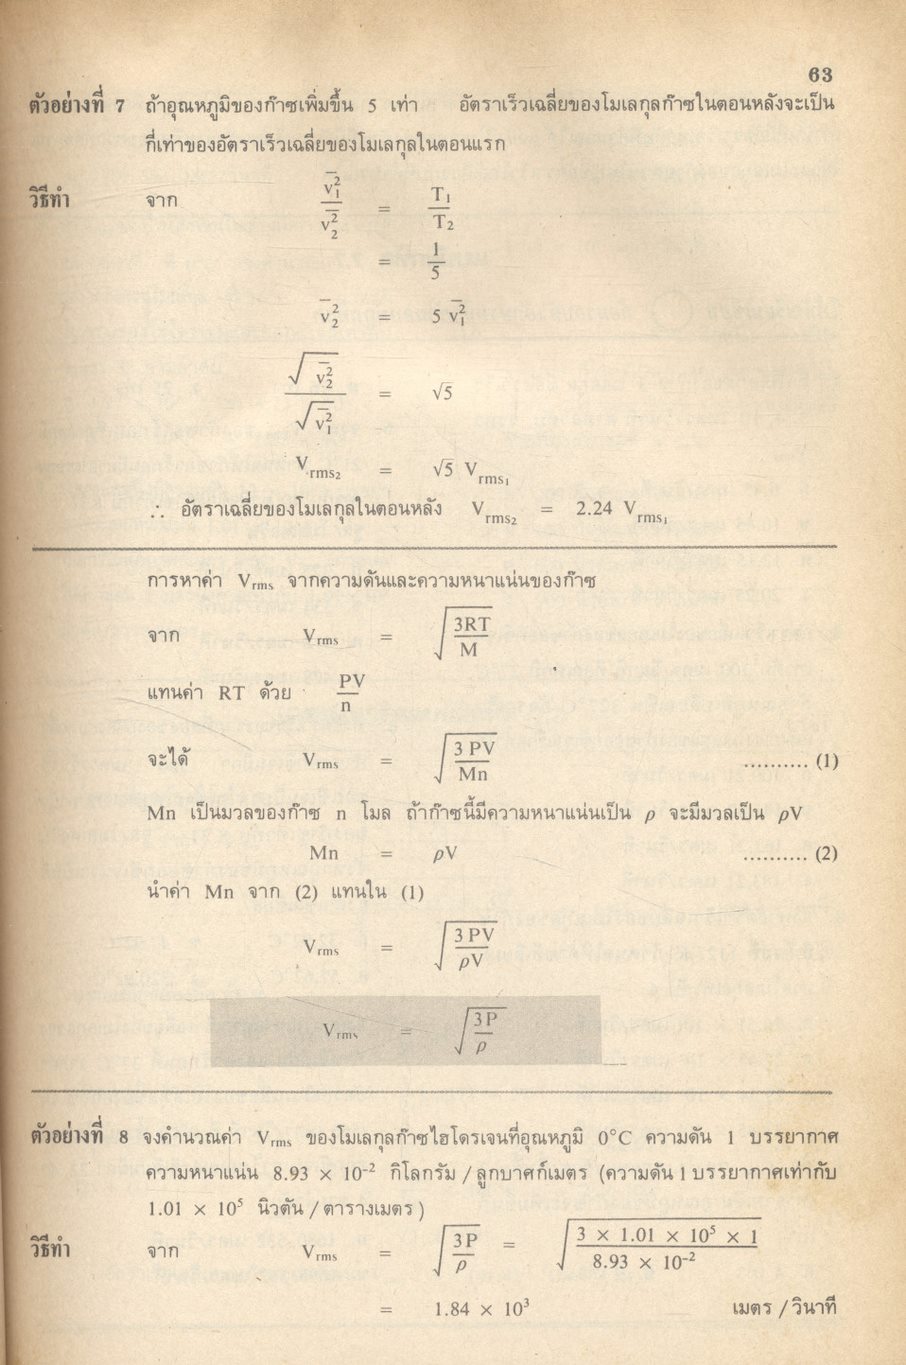 63
ตัวอย่างที่ 7 ถ้าอุณหภูมิของก๊าซเพิ่มขึ้น 5 เท่า อัตราเร็วเฉลี่ยของโมเลกุลก๊าซในตอนหลังจะเป็น
กี่เท่าของอัตราเร็วเฉลี่ยของโมเลกุลในตอนแรก
วิธีทำ จาก v̄₁²/v̄₂² = T₁/T₂
= 1/5
v̄₂² = 5 v̄₁²
√v̄₂²/√v̄₁² = √5
V rms₂ = √5 V rms₁
∴ อัตราเฉลี่ยของโมเลกุลในตอนหลัง V rms₂ = 2.24 V rms₁
การหาค่า Vrms จากความดันและความหนาแน่นของก๊าซ
จาก Vrms = √(3RT/M)
แทนค่า RT ด้วย PV/n
จะได้ Vrms = √(3 PV/Mn) .......... (1)
Mn เป็นมวลของก๊าซ n โมล ถ้าก๊าซนี้มีความหนาแน่นเป็น ρ จะมีมวลเป็น ρV
Mn = ρV .......... (2)
นำค่า Mn จาก (2) แทนใน (1)
Vrms = √(3 PV/ρV)
Vrms = √(3P/ρ)
ตัวอย่างที่ 8 จงคำนวณค่า Vrms ของโมเลกุลก๊าซไฮโดรเจนที่อุณหภูมิ 0°C ความดัน 1 บรรยากาศ
ความหนาแน่น 8.93 × 10⁻² กิโลกรัม / ลูกบาศก์เมตร (ความดัน 1 บรรยากาศเท่ากับ
1.01 × 10⁵ นิวตัน / ตารางเมตร )
วิธีทำ จาก Vrms = √(3P/ρ) = √(3 × 1.01 × 10⁵ × 1/8.93 × 10⁻²)
= 1.84 × 10³ เมตร / วินาที